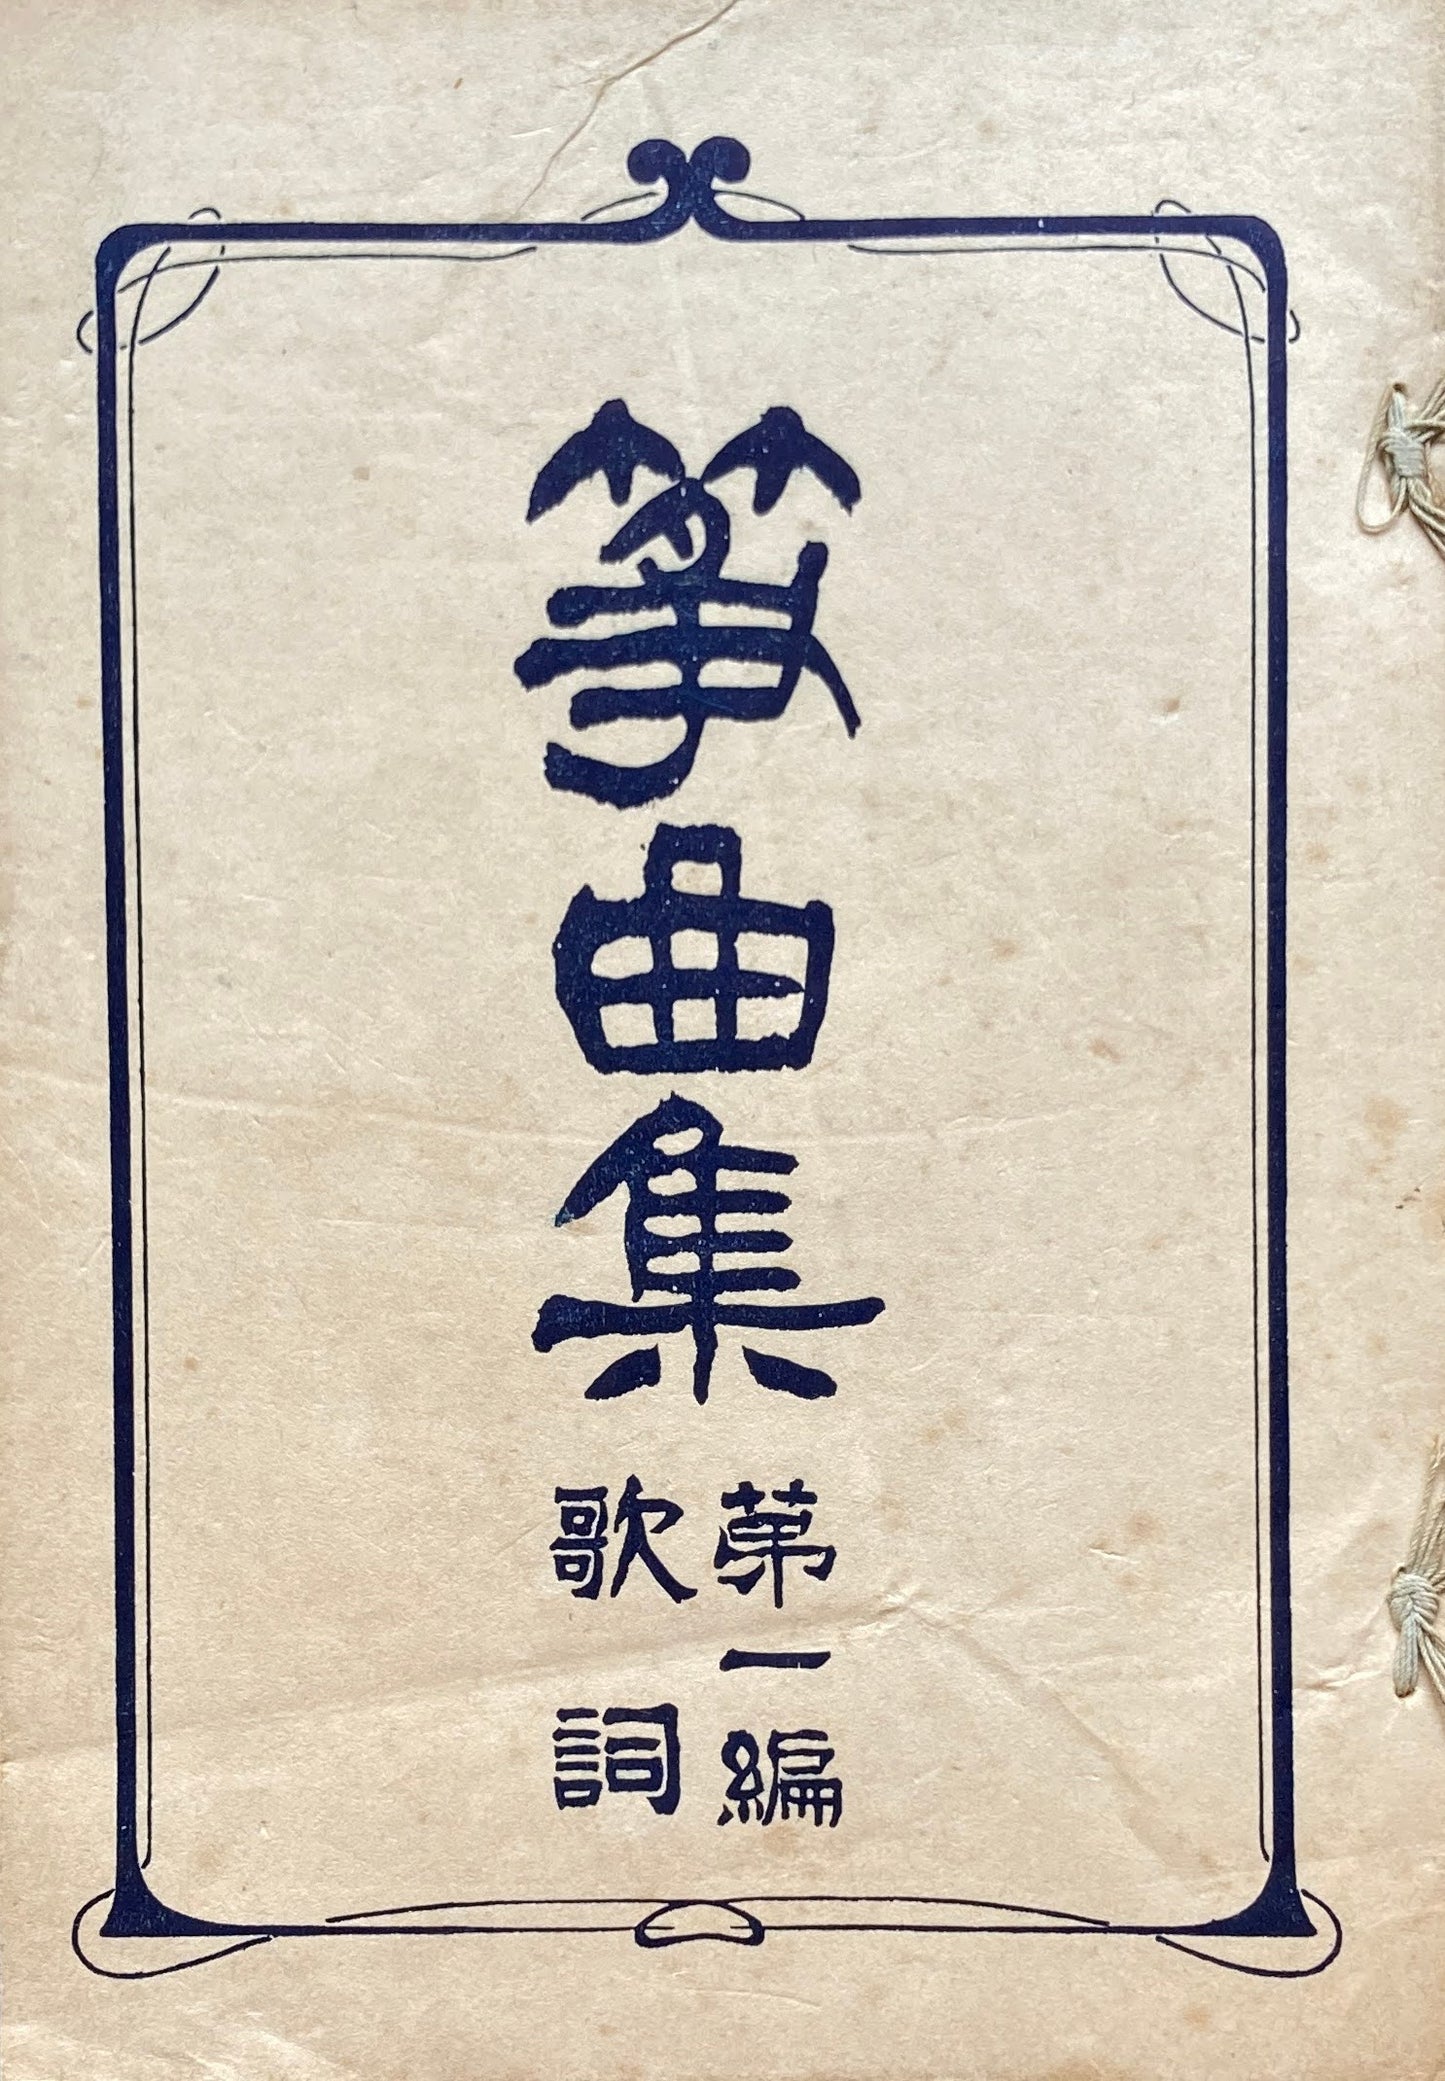 箏曲集
第一編
歌詞